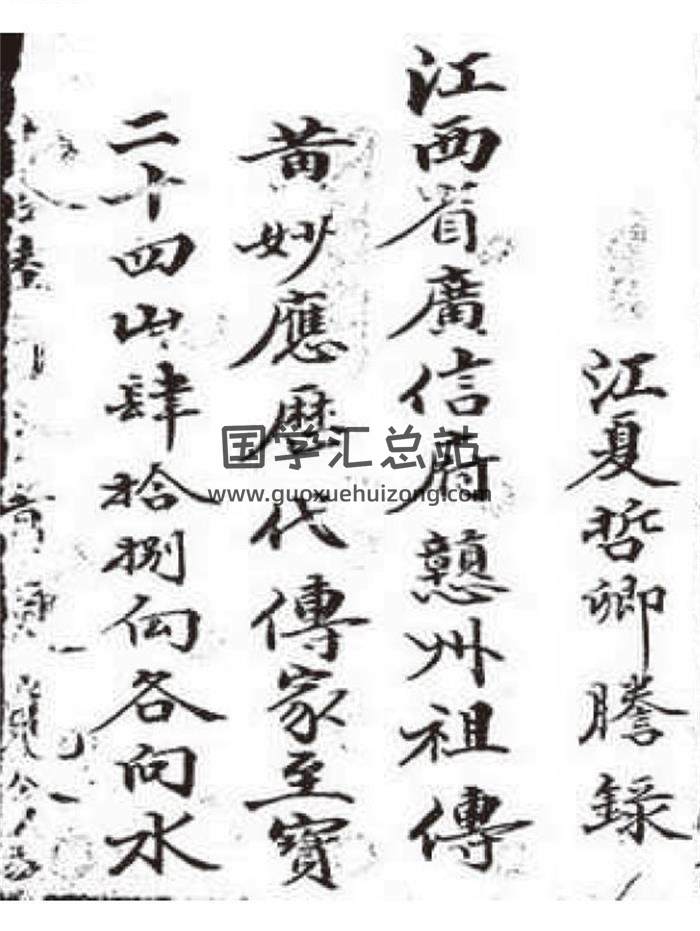 江夏哲卿謄錄
江西省廣信府戇州祖傳
黃妙應歷代傳家至寶
二十四山肆拾捌向各向水
国学汇总站
www.guoxuehuizong.com